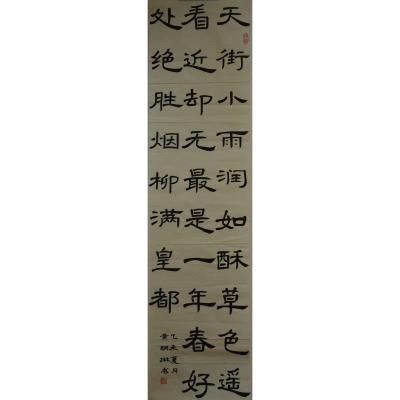 天街小雨润如酥草色遥
看近却无最是一年春好
处绝胜烟柳满皇都
乙未夏月
书